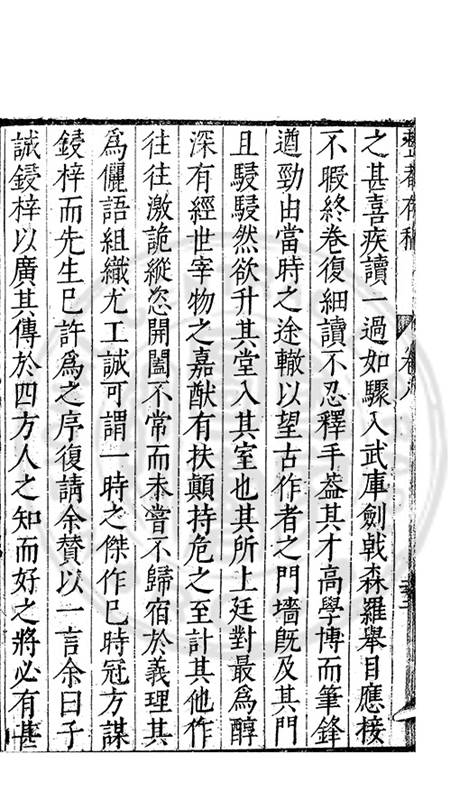 整菴存稿
卷九
之甚喜疾讀一過如驟入武庫劍戟森羅舉目應接
不暇終卷復細讀不忍釋手葢其才高學博而筆鋒
遒勁由當時之途轍以望古作者之門墻旣及其門
且駸駸然欲升其堂入其室也其所上廷對最爲醇
深有經世宰物之嘉猷有扶顛持危之至計其他作
往往激詭縱恣開闔不常而未嘗不歸宿於義理其
爲儷語組織尤工誠可謂一時之傑作巳時冠方謀
鋟梓而先生巳許爲之序復請余賛以一言余曰子
誠鋟梓以廣其傳於四方人之知而好之將必有甚